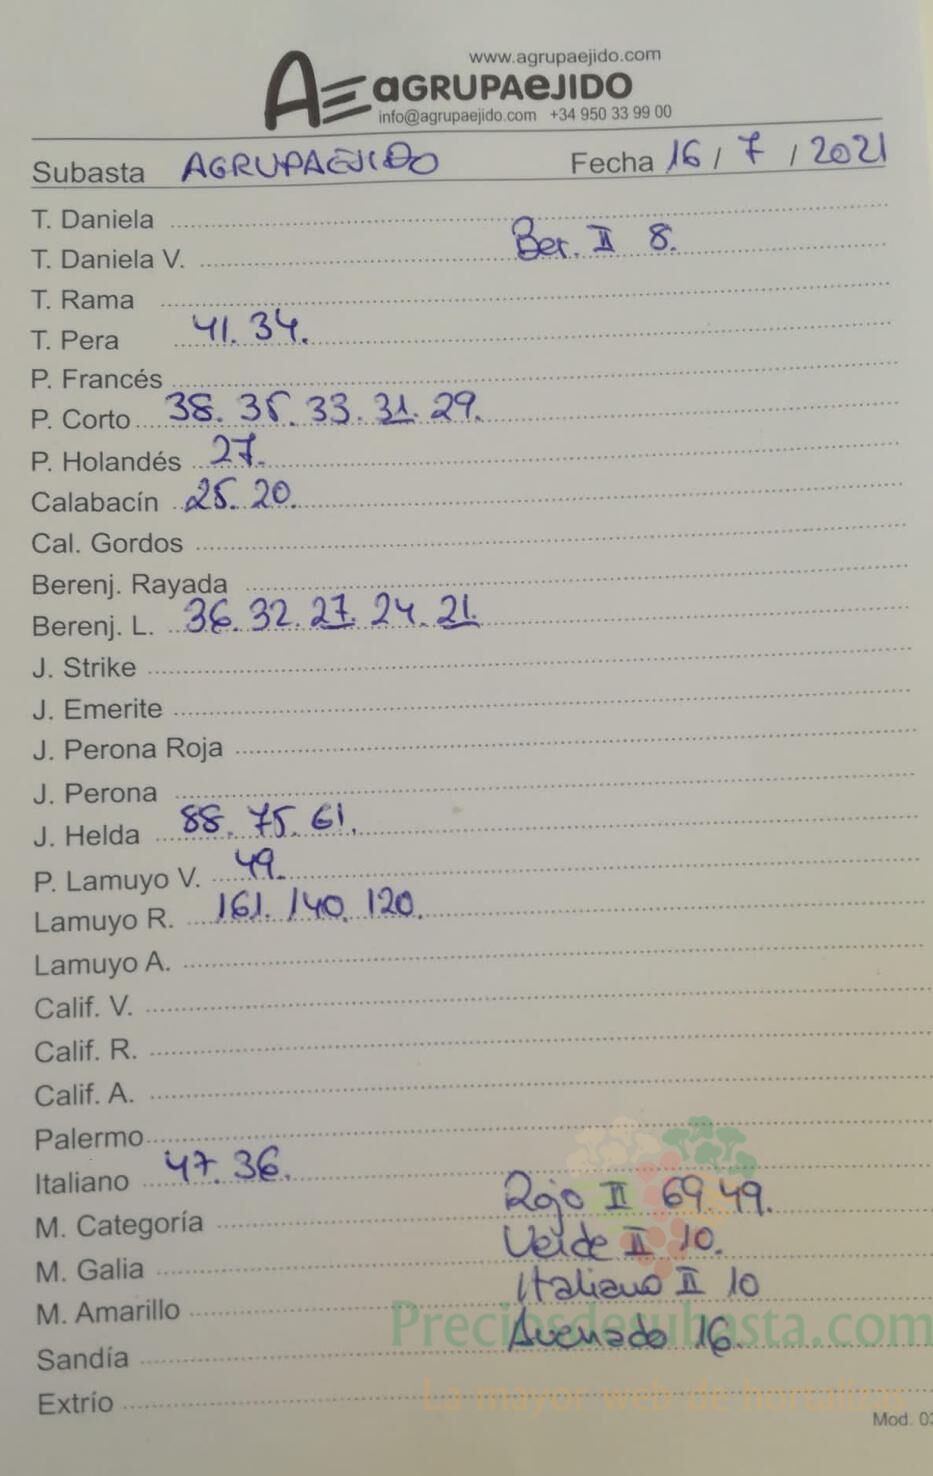 www.agrupaejido.com
AE aGRUPAeJIDO
info@agrupaejido.com +34 950 33 99 00
Subasta AGRUPAEJIDO Fecha 16 / 7 / 2021
T. Daniela
T. Daniela V. Ber. II 8.
T. Rama
T. Pera 41. 34.
P. Francés
P. Corto 38. 35. 33. 31. 29.
P. Holandés 27.
Calabacín 25. 20.
Cal. Gordos
Berenj. Rayada
Berenj. L. 36. 32. 27. 24. 21.
J. Strike
J. Emerite
J. Perona Roja
J. Perona
J. Helda 88. 75. 61.
P. Lamuyo V. 49.
Lamuyo R. 161. 140. 120.
Lamuyo A.
Calif. V.
Calif. R.
Calif. A.
Palermo
Italiano 47. 36.
M. Categoría Rojo II 69. 49.
M. Galia Verde II 10.
M. Amarillo Italiano II 10
Preciosdesubasta.com
Sandía Asurado 16.
Extrío La mayor web de hortalizas
Mod. 03